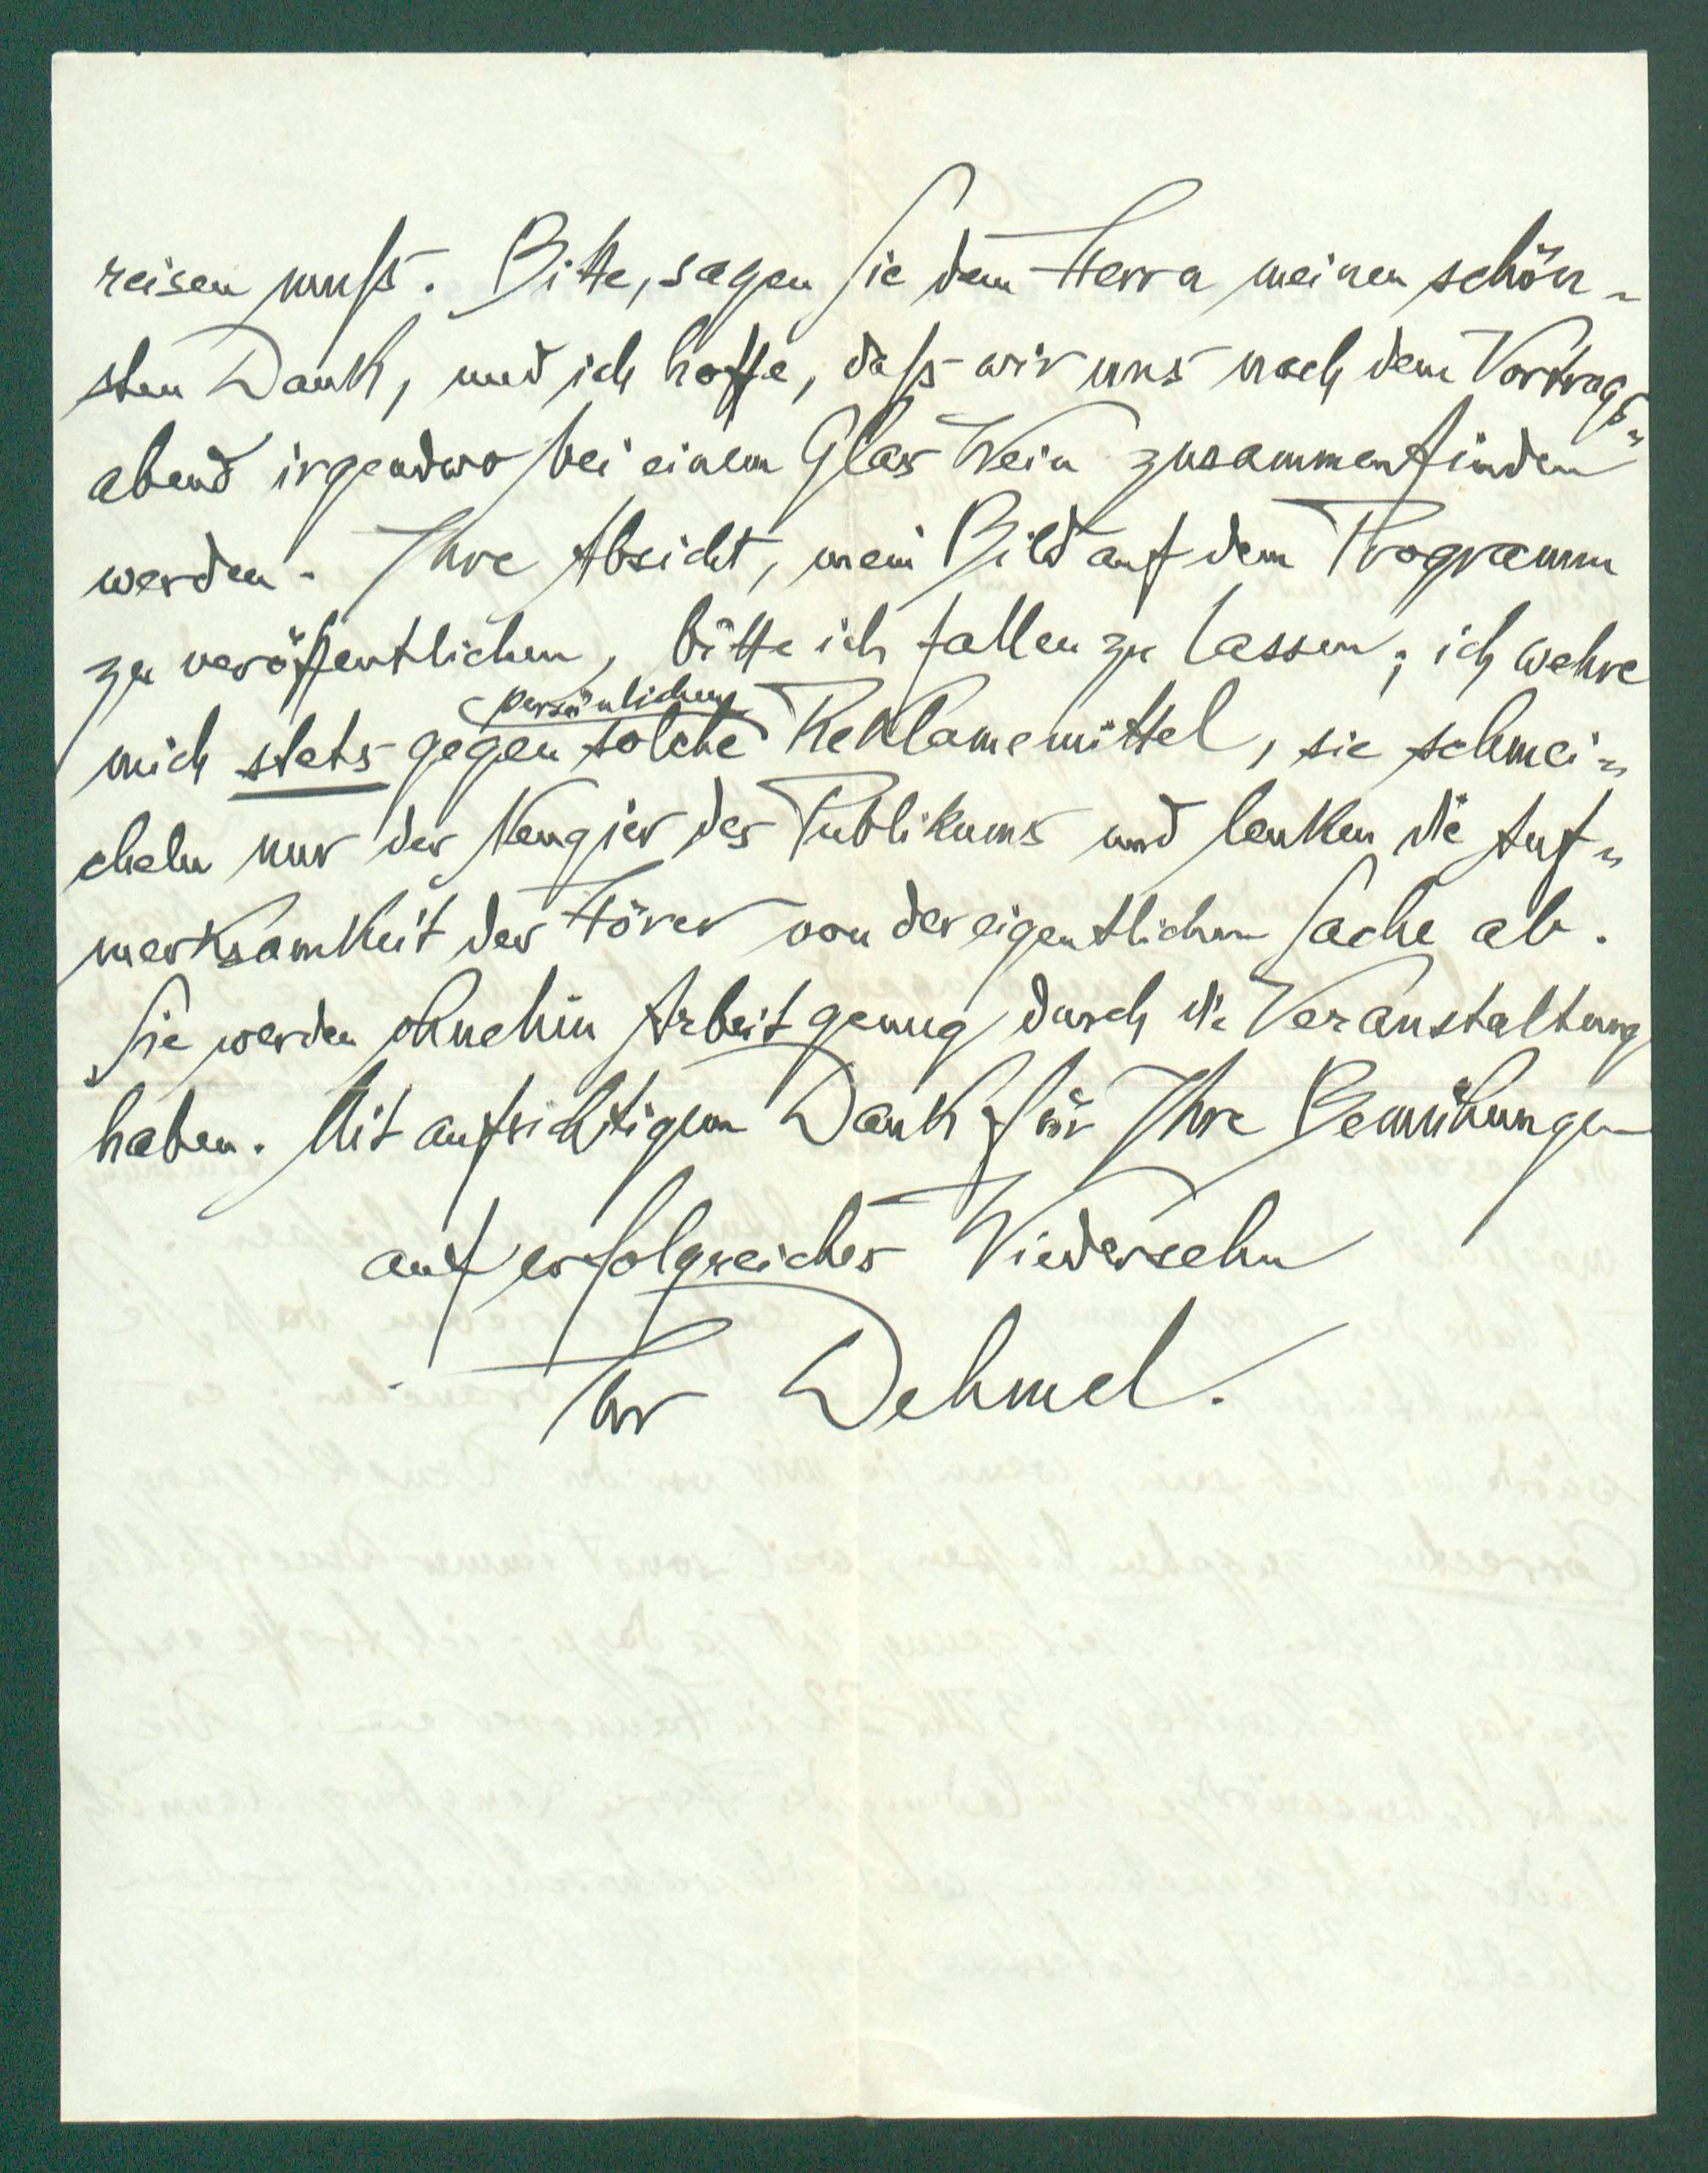 reisen muß. Bitte, sagen Sie dem Herrn meinen schön-
sten Dank, und ich hoffe, daß wir uns nach dem Vortrags-
abend irgendwo bei einem Glas Wein zusammenfinden
werden. Ihre Absicht, mein Bild auf dem Programm
zu veröffentlichen, bitte ich fallen zu lassen; ich wehre
persönlichen
mich stets gegen solche Reklamemittel, sie schmei-
cheln nur der Neugier des Publikums und lenken die Auf-
merksamkeit der Hörer von der eigentlichen Sache ab.
Sie werden ohnehin Arbeit genug durch die Veranstaltung
haben. Mit aufrichtigem Dank für Ihre Bemühungen
auf erfolgreiches Wiedersehn
Ihr Dehmel.